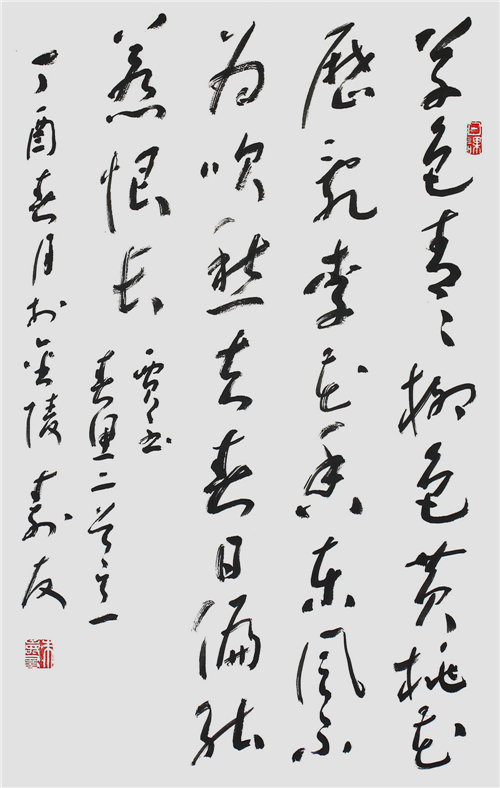 草色青〻柳色黄桃花
歷乱李花香东风不
为吹愁去春日偏能
惹恨长 贾至
春思二首之一
丁酉春月於金陵 寿友